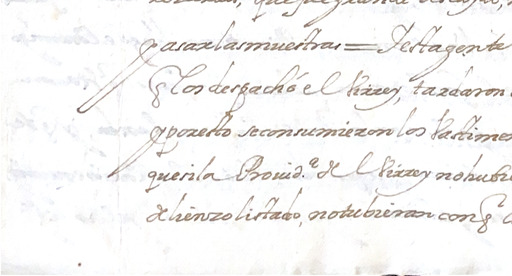 pasar las muestras = Y esta gente
q̃ los despachó el Virrey, tardaron
y por esto se consumieron los bastime
que si la Provid.ª de el Virrey no hubie
de lienzo listado, no tubieran con q̃